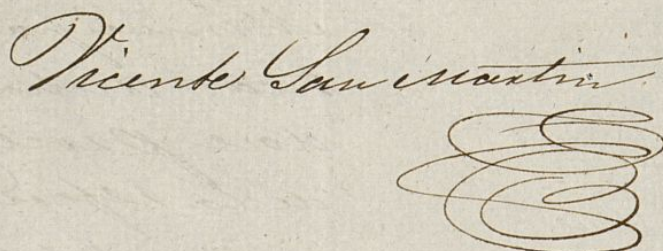 Vicente San Martin